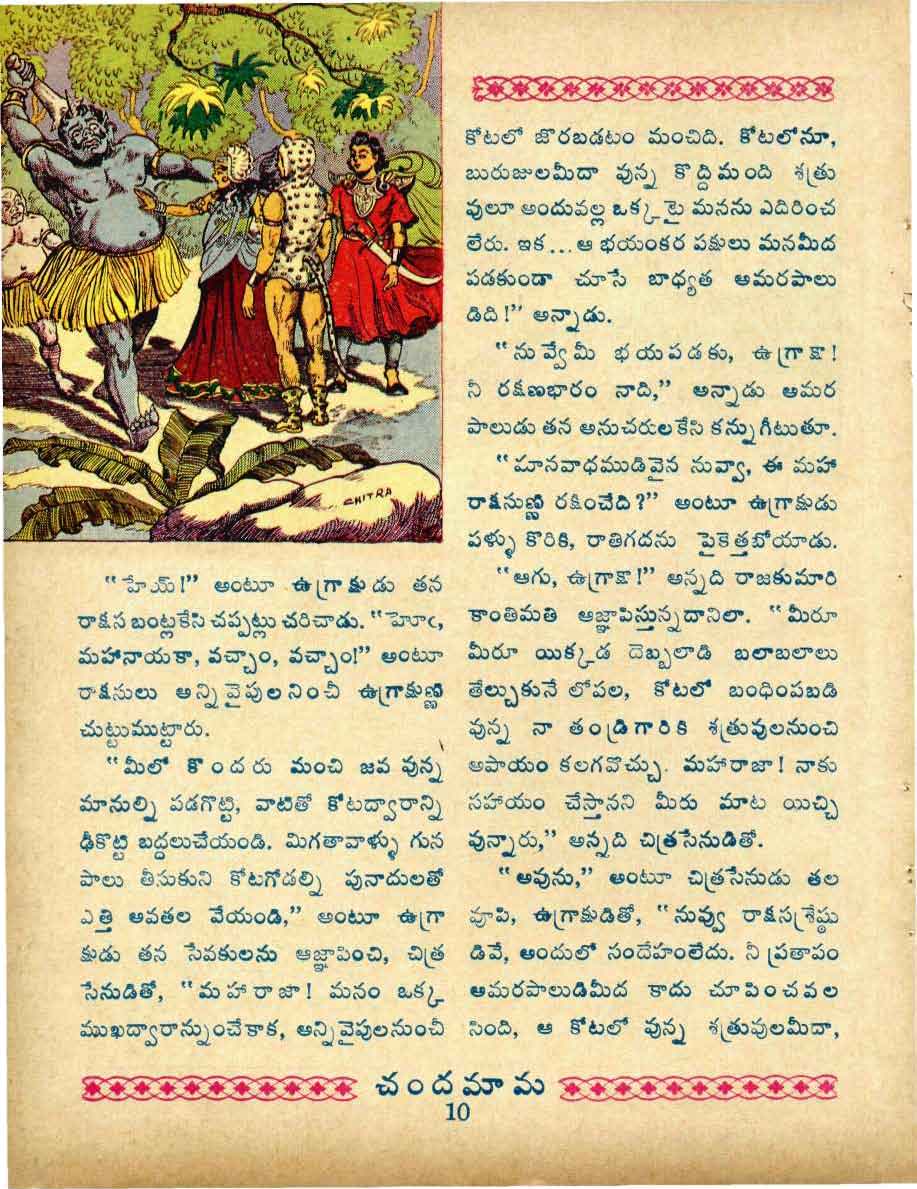 CHITRA
"హేయ్!" అంటూ ఉగ్రాక్షుడు తన
రాక్షస బంట్లకేసి చప్పట్లు చరిచాడు. "హెూఁ,
మహానాయకా, వచ్చాం, వచ్చాం!" అంటూ
రాక్షసులు అన్ని వైపుల నించీ ఉగ్రాక్షుణ్ణి
చుట్టుముట్టారు.
"మీలో కొందరు మంచి జవ వున్న
మానుల్ని పడగొట్టి, వాటితో కోటద్వారాన్ని
ఢీకొట్టి బద్దలుచేయండి. మిగతావాళ్ళు గున
పాలు తీసుకుని కోటగోడల్ని పునాదులతో
ఎత్తి అవతల వేయండి," అంటూ ఉగ్రా
క్షుడు తన సేవకులను ఆజ్ఞాపించి, చిత్ర
సేనుడితో, "మహారాజా! మనం ఒక్క
ముఖద్వారాన్నుంచేకాక, అన్నివైపులనుంచీ
కోటలో జొరబడటం మంచిది. కోటలోనూ,
బురుజులమీదా వున్న కొద్దిమంది శత్రు
వులూ అందువల్ల ఒక్కటై మనను ఎదిరించ
లేరు. ఇక... ఆ భయంకర పక్షులు మనమీద
పడకుండా చూసే బాధ్యత అమరపాలు
డిది!" అన్నాడు.
"నువ్వేమీ భయపడకు, ఉగ్రాక్షా!
నీ రక్షణభారం నాది," అన్నాడు అమర
పాలుడు తన అనుచరులకేసి కన్నుగీటుతూ.
"మానవాధముడివైన నువ్వా, ఈ మహా
రాక్షసుణ్ణి రక్షించేది?" అంటూ ఉగ్రాక్షుడు
పళ్ళు కొరికి, రాతిగదను పైకెత్తబోయాడు.
"ఆగు, ఉగ్రాక్షా!" అన్నది రాజకుమారి
కాంతిమతి ఆజ్ఞాపిస్తున్నదానిలా. "మీరూ
మీరూ యిక్కడ దెబ్బలాడి బలాబలాలు
తేల్చుకునే లోపల, కోటలో బంధింపబడి
వున్న నా తండ్రిగారికి శత్రువులనుంచి
అపాయం కలగవొచ్చు. మహారాజా! నాకు
సహాయం చేస్తానని మీరు మాట యిచ్చి
వున్నారు," అన్నది చిత్రసేనుడితో.
"అవును," అంటూ చిత్రసేనుడు తల
వూపి, ఉగ్రాక్షుడితో, "నువ్వు రాక్షసశ్రేష్ఠు
డివే, అందులో సందేహంలేదు. నీ ప్రతాపం
అమరపాలుడిమీద కాదు చూపించవల
సింది, ఆ కోటలో వున్న శత్రువులమీదా,
చందమామ
10